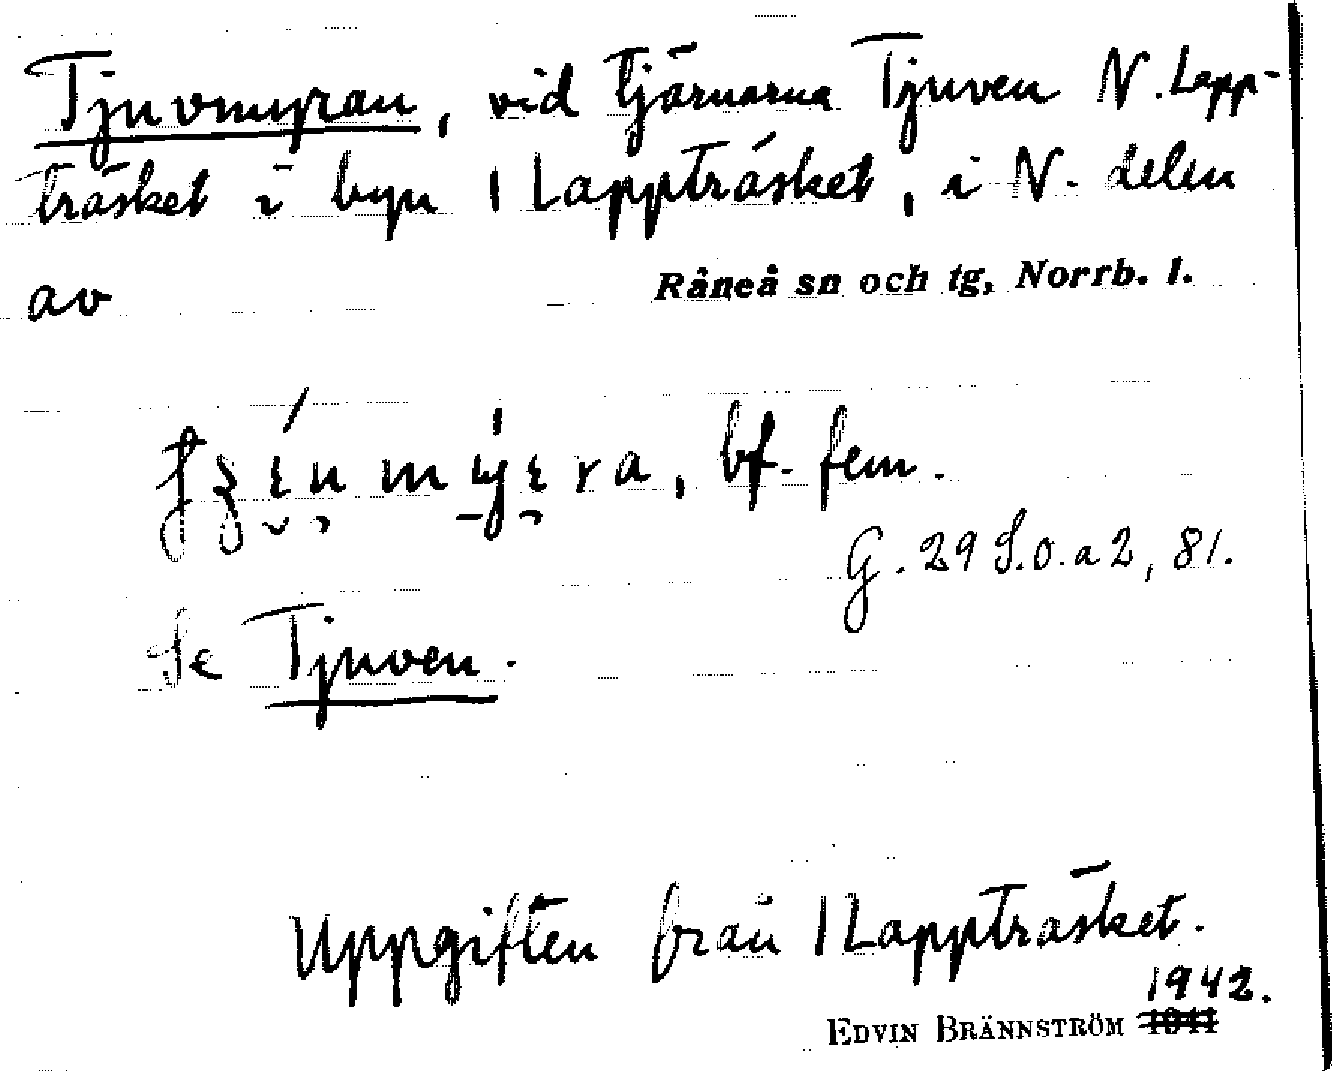 Tjuvmyran, vid tjärnarna Tjuven N. Lapp-
träsket i byn 1 Lappträsket, i N. delen
av
Råneå sn och tg, Norrb. l.
bf. fem.
G. 29 S.o. a 2, 81.
Se Tjuven.
Uppgiften från 1 Lappträsket.
1942.
EDVIN BRÄNNSTRÖM 1941